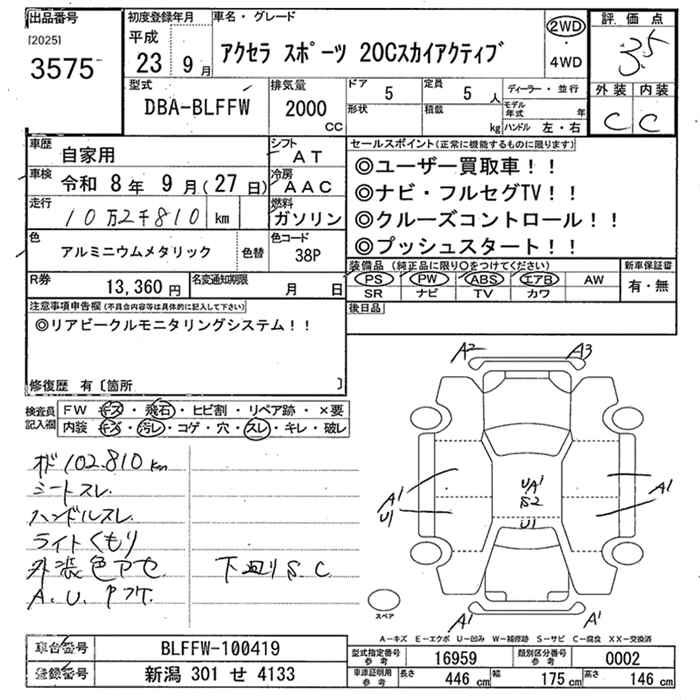 出品番号
[2025]
3575
初度登録年月
平成
23 9月
車名・グレード
アクセラ スポーツ 20Cスカイアクティブ
2WD
・
4WD
評価点
3.5
外装 内装
C C
型式
DBA-BLFFW
排気量
2000
CC
ドア
5
定員
5 人
形状
積載
kg
ディーラー・並行
モデル年式 年
ハンドル 左・右
車歴
自家用
シフト
AT
車検
令和 8年 9月(27日)
冷房
AAC
走行
10万2千810 km
燃料
ガソリン
色
アルミニウムメタリック
色替
色コード
38P
R券
13,360円
名変通知期限
月 日
セールスポイント(正常に機能するものに限ります)
◎ユーザー買取車!!
◎ナビ・フルセグTV!!
◎クルーズコントロール!!
◎プッシュスタート!!
装備品(純正品に限り○をつけてください)
PS PW ABS エアB AW
SR ナビ TV カワ
新車保証書
有・無
後日品
注意事項申告欄(不具合内容等は具体的に記入して下さい)
◎リアビークルモニタリングシステム!!
修復歴 有〔箇所 〕
検査員
記入欄
FW キズ・飛石・ヒビ割・リペア跡・×要
内装 キズ・汚レ・コゲ・穴・スレ・キレ・破レ
オド102.810km
シートスレ
ハンドルスレ
ライトくもり
外装色アセ
A.U.Pアケ
下廻りS.C
A2 A3
A1
U1
UA1
S2
U1
A1
A1 A1
スペア
A-キズ E-エクボ U-凹み W-補修跡 S-サビ C-腐食 XX-交換済
車台番号
BLFFW-100419
登録番号
新潟 301 せ 4133
型式指定番号
参考
16959
類別区分番号
参考
0002
車庫証明用
参考
長さ
446cm
幅
175cm
高さ
146cm